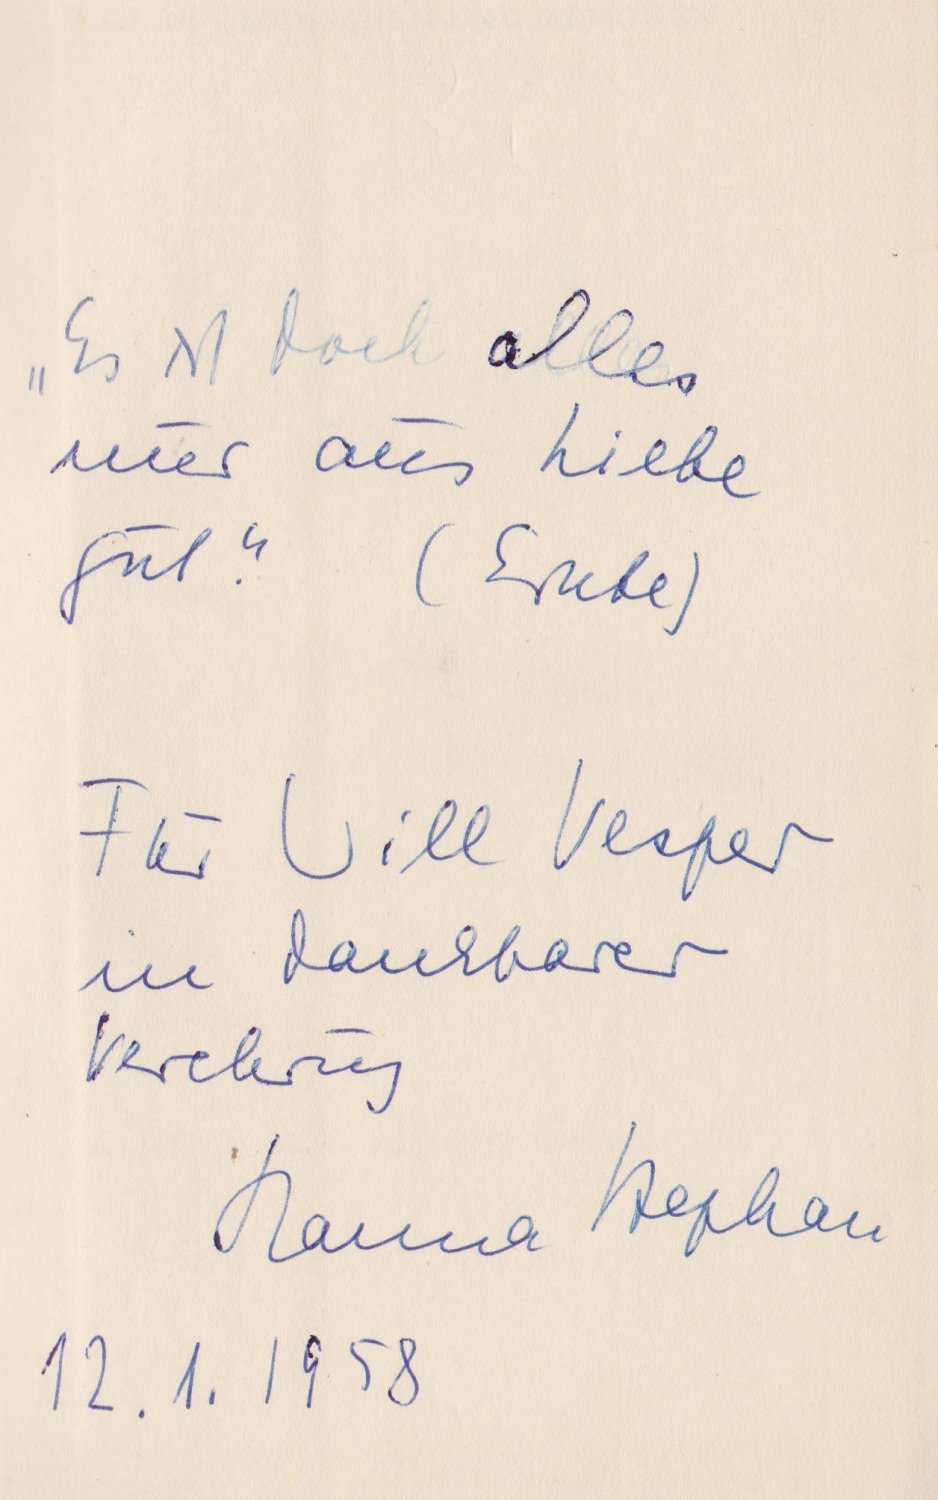 „Es ist doch alles
nur aus Liebe
gut." (Ernte)
Für Will Vesper
in dankbarer
Verehrung
Hanna Stephan
12.1.1958